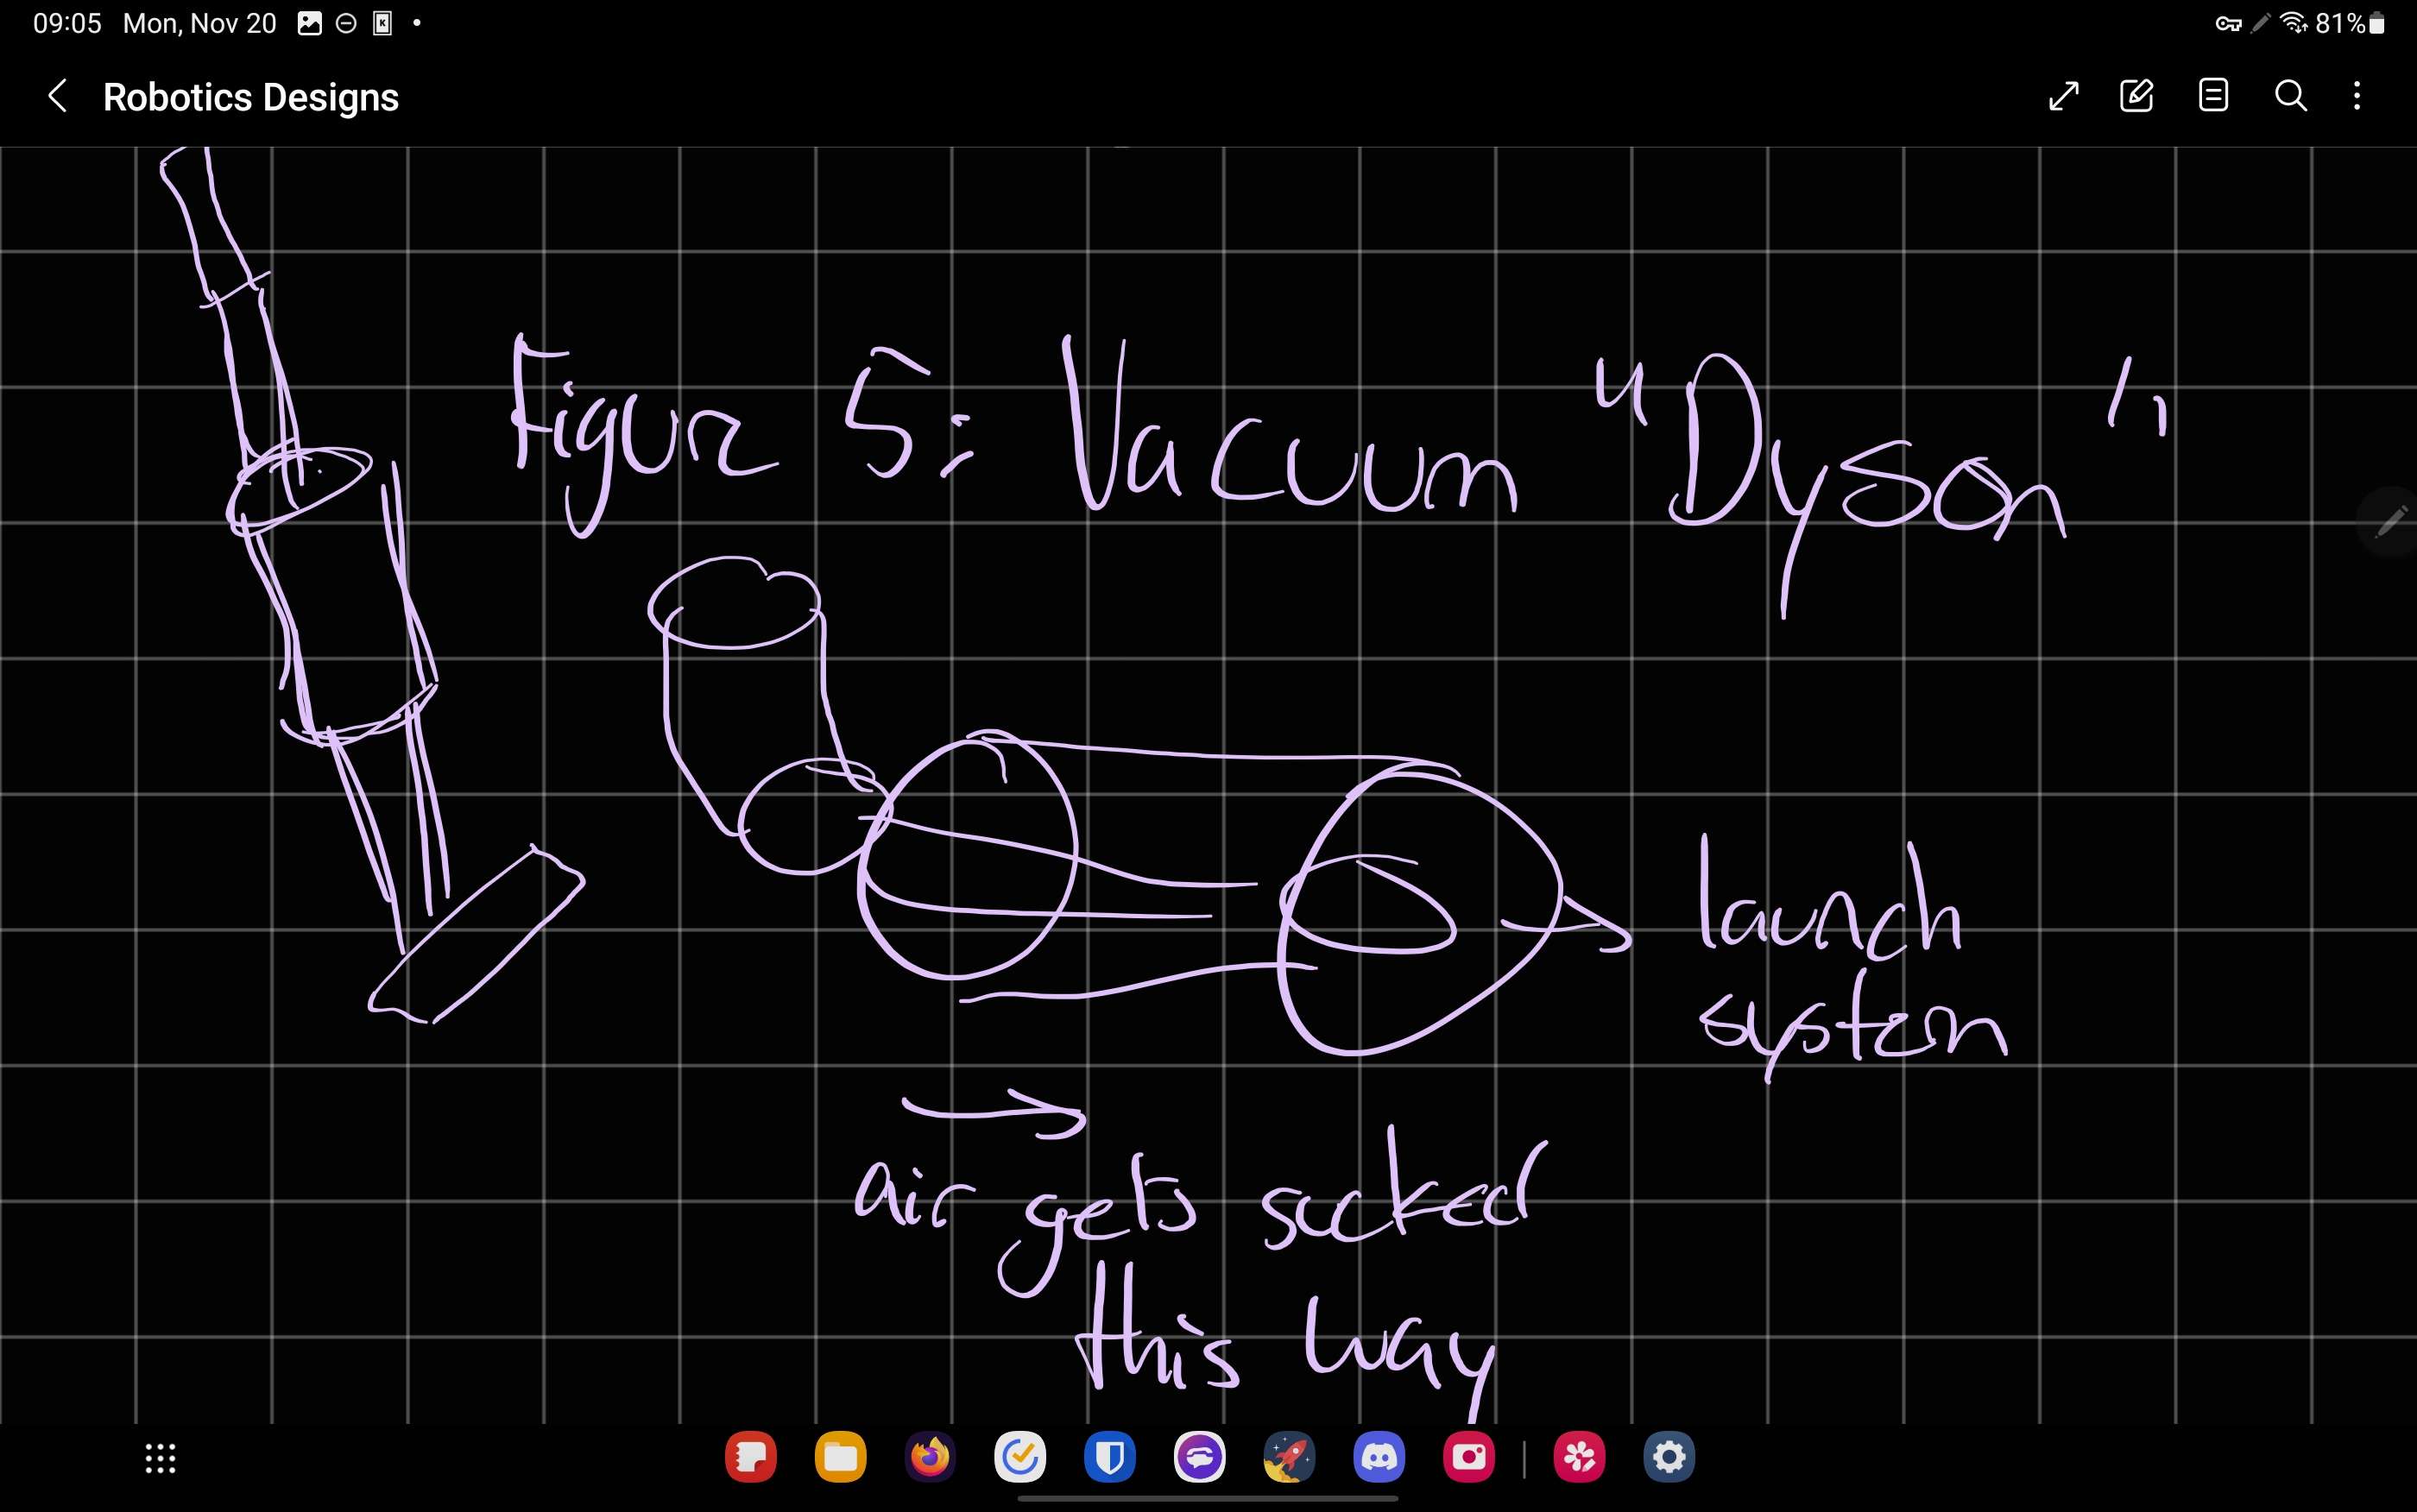 09:05 Mon, Nov 20
81%
Robotics Designs
Figure 5: Vacuum "Dyson"
launch
system
air gets sucked
this way